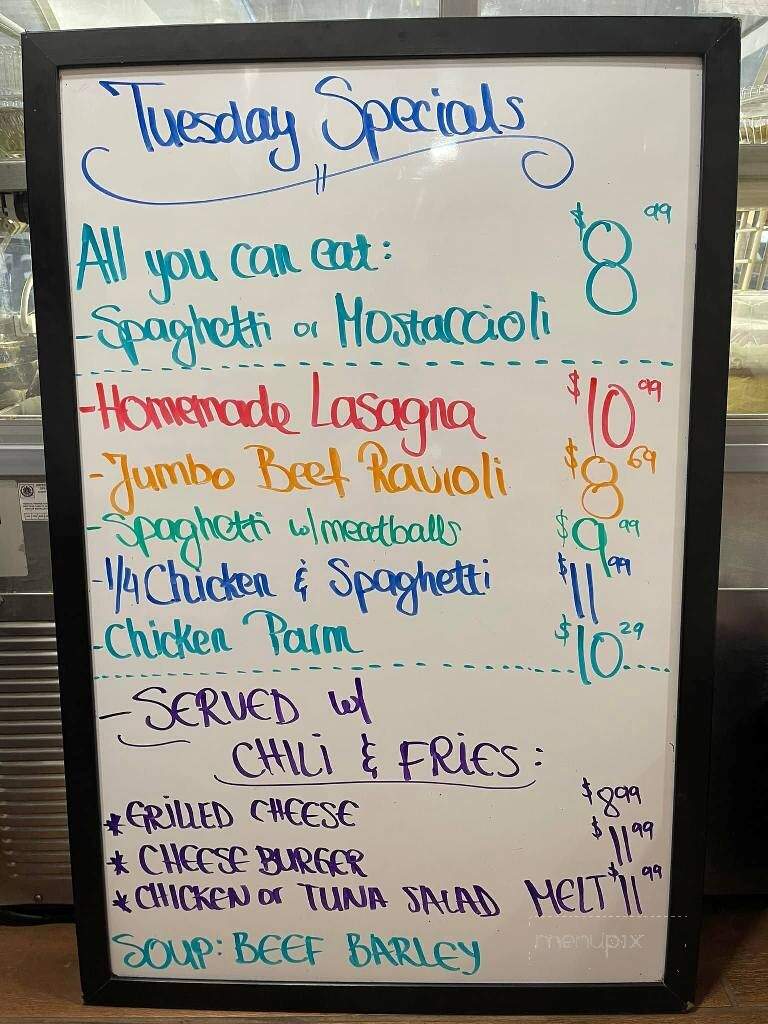 Tuesday Specials
All you can eat: $8.99
-Spaghetti or Mostaccioli
-Homemade Lasagna $10.99
-Jumbo Beef Ravioli $8.69
-Spaghetti w/meatballs $9.99
-1/4 Chicken & Spaghetti $11.99
-Chicken Parm $10.29
-SERVED w/
CHILI & FRIES:
*GRILLED CHEESE $8.99
*CHEESE BURGER $11.99
*CHICKEN or TUNA SALAD MELT $11.99
SOUP: BEEF BARLEY
menupix